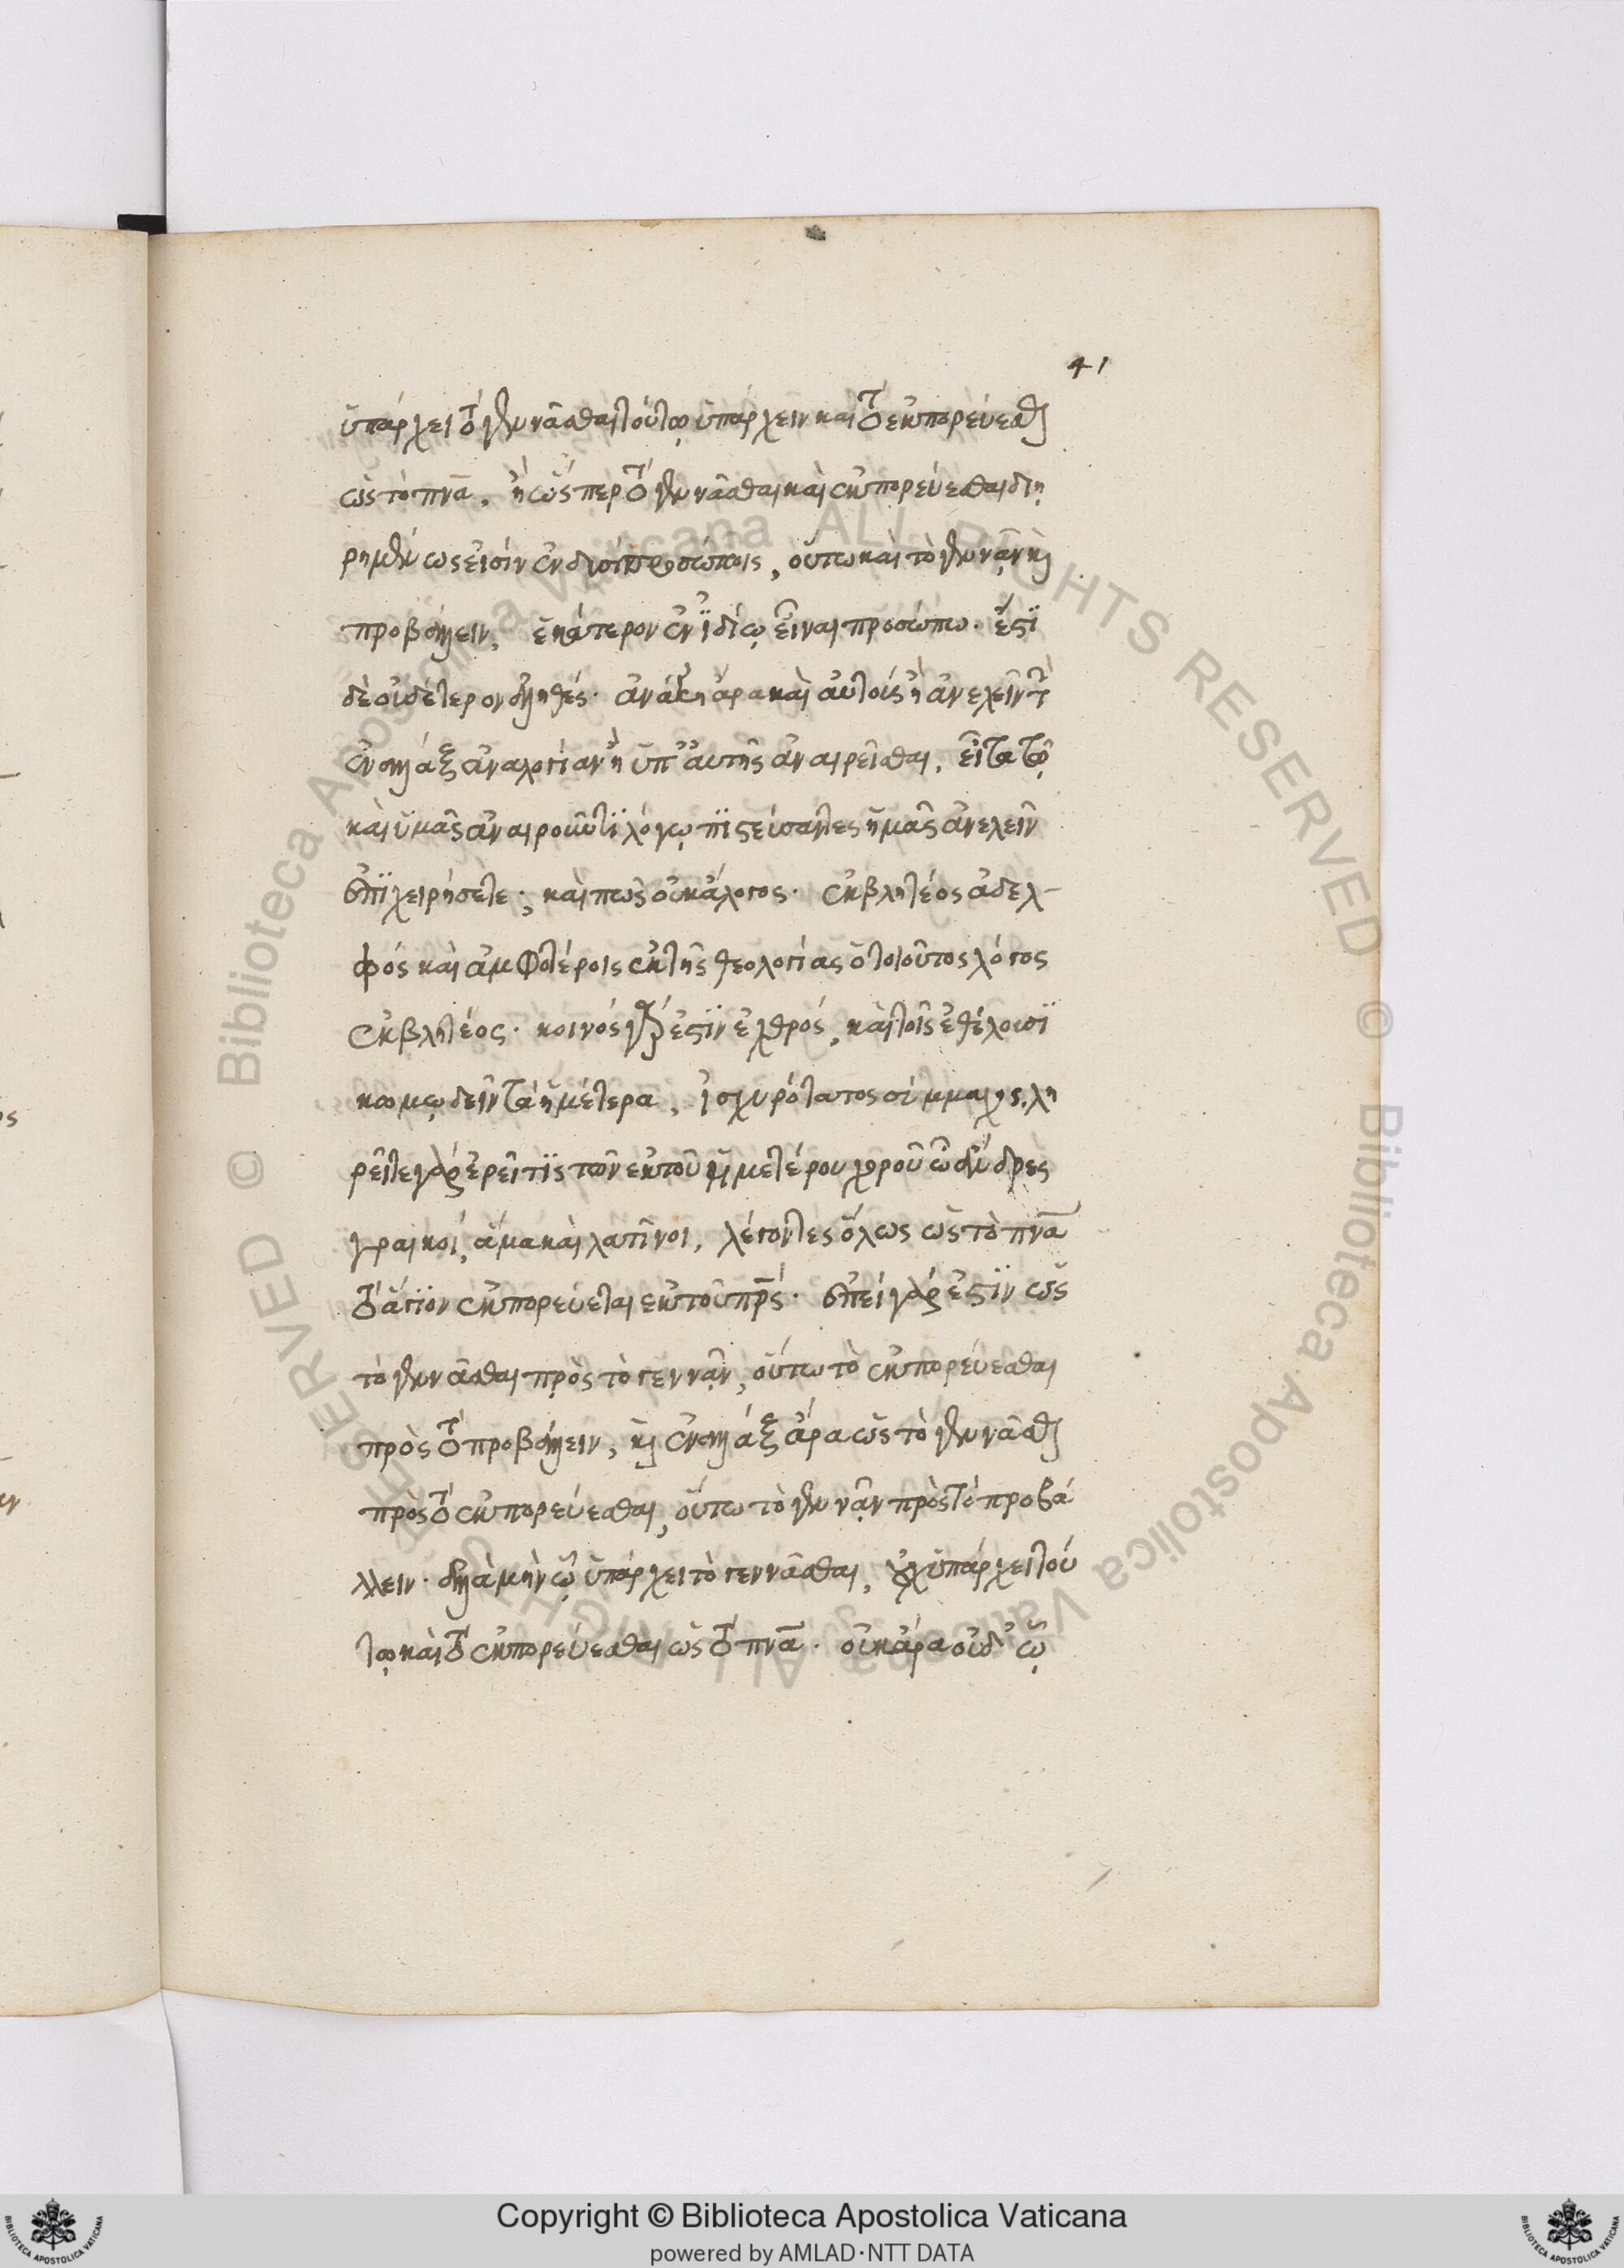 41
ὑπάρχει τὸ γεννᾶσθαι τούτῳ ὑπάρχειν καὶ τὸ ἐκπορεύεσθαι
ὡς τὸ πνα. ἢ ὥσπερ τὸ γεννᾶσθαι καὶ ἐκπορεύεσθαι διῃ
ρημένως εἰσὶν ἐν δυσὶ προσώποις, οὕτω καὶ τὸ γεννᾶν καὶ
προβάλλειν, ἑκάτερον ἐν ἰδίῳ εἶναι προσώπω. ἔστι
δὲ οὐδέτερον ἀληθές. ἀνάγκη ἄρα καὶ αὐτοὺς ἢ ἀνελεῖν τὴν
ἐναλλὰξ ἀναλογίαν ἢ ὑπ' αὐτῆς ἀναιρεῖσθαι. εἶτα τῷ
καὶ ὑμᾶς ἀναιροῦντι λόγῳ πιστεύσαντες ἡμᾶς ἀνελεῖν
ἐπιχειρήσετε; καὶ πῶς οὐκ ἄλογος. ἐκβλητέος ἀδελ-
φός καὶ ἀμφοτέροις ἐκ τῆς θεολογίας ὁ τοιοῦτος λόγος
ἐκβλητέος. κοινὸς γάρ ἐστιν ἐχθρός, καὶ τοῖς ἐθέλουσι
κωμῳδεῖν τὰ ἡμέτερα, ἰσχυρότατος σύμμαχος. λη
ρεῖτε γὰρ ἐρεῖ τις τῶν ἐκ τοῦ ἡμετέρου χοροῦ ὦ ἄνδρες
γραικοί, ἅμα καὶ λατῖνοι, λέγοντες ὅλως ὡς τὸ πνα
τὸ ἅγιον ἐκπορεύεται ἐκ τοῦ πρς. ἐπεὶ γάρ ἐστιν ὡς
τὸ γεννᾶσθαι πρὸς τὸ γεννᾶν, οὕτω τὸ ἐκπορεύεσθαι
πρὸς τὸ προβάλλειν, καὶ ἐναλλὰξ ἄρα ὡς τὸ γεννᾶσθαι
πρὸς τὸ ἐκπορεύεσθαι, οὕτω τὸ γεννᾶν πρὸς τὸ προβά
λλειν. ἀλλὰ μὴν ᾧ ὑπάρχει τὸ γεννᾶσθαι, οὐχ ὑπάρχει τού
τῳ καὶ τὸ ἐκπορεύεσθαι ὡς τὸ πνα. οὐκ ἄρα οὐδ' ᾧ
Copyright © Biblioteca Apostolica Vaticana
powered by AMLAD·NTT DATA